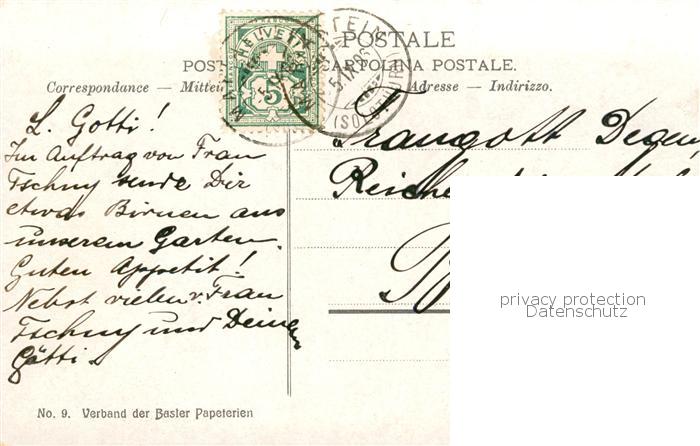 POSTALE
CARTOLINA POSTALE.
Correspondance — Mittei
Adresse — Indirizzo.
HELVETIA
5
L. Gotti!
Im Auftrag von Frau
Tschuy sende Dir
etwas Birnen aus
unserem Garten.
Guten Appetit!
Nebst vielen v. Frau
Tschuy und Deinem
Götti.
Traugott Degen
No. 9. Verband der Basler Papeterien
privacy protection
Datenschutz